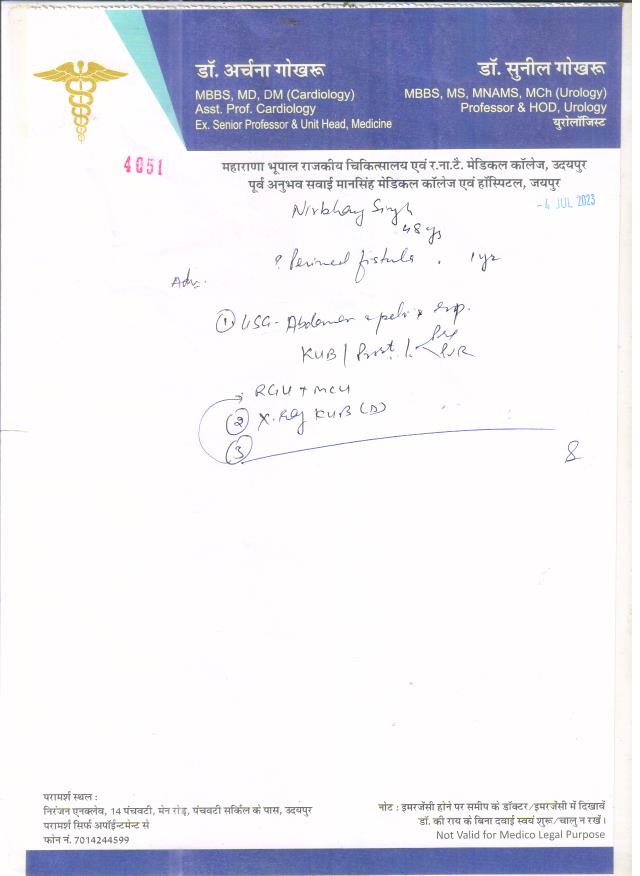 डॉ. अर्चना गोखरू
MBBS, MD, DM (Cardiology)
Asst. Prof. Cardiology
Ex. Senior Professor & Unit Head, Medicine
डॉ. सुनील गोखरू
MBBS, MS, MNAMS, MCh (Urology)
Professor & HOD, Urology
युरोलॉजिस्ट
4051
महाराणा भूपाल राजकीय चिकित्सालय एवं र.ना.टै. मेडिकल कॉलेज, उदयपुर
पूर्व अनुभव सवाई मानसिंह मेडिकल कॉलेज एवं हॉस्पिटल, जयपुर
- 4 JUL 2023
Nirbhay Singh
48 ys
? Perineal fistula . 1 yr
Adv:
① USG - Abdomen
KUB / Prost /
PVR
RGU + MCU
② X-Ray KUB (D)
③
परामर्श स्थल :
निरंजन एनक्लेव, 14 पंचवटी, मेन रोड़, पंचवटी सर्किल के पास, उदयपुर
परामर्श सिर्फ अपॉईन्टमेन्ट से
फोन नं. 7014244599
नोट : इमरजेंसी होने पर समीप के डॉक्टर/इमरजेंसी में दिखावें
डॉ. की राय के बिना दवाई स्वयं शुरू/चालु न रखें।
Not Valid for Medico Legal Purpose